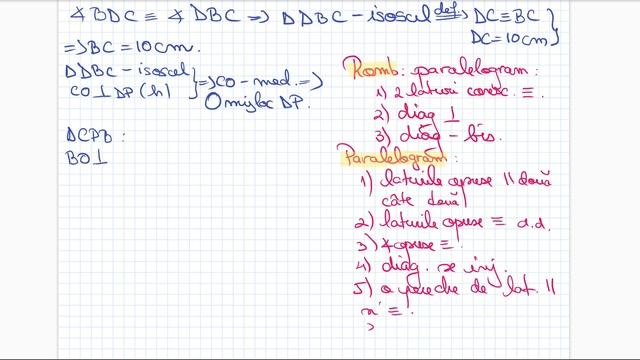 ∢BDC ≡ ∢DBC => ΔDBC - isoscel =def.=> DC ≡ BC
DC = 10cm
=> BC = 10cm.
ΔDBC - isoscel
CO ⊥ DP (h)
=> CO - med. =>
O mijloc DP.
DCPB :
BO ⊥
Romb: paralelogram:
1) 2 laturi consc. ≡.
2) diag ⊥
3) diag - bis.
Paralelogram:
1) laturile opuse || două
câte două
2) laturile opuse ≡ d.d.
3) ∢ opuse ≡.
4) diag. se înj.
5) o pereche de lat. ||
și ≡.